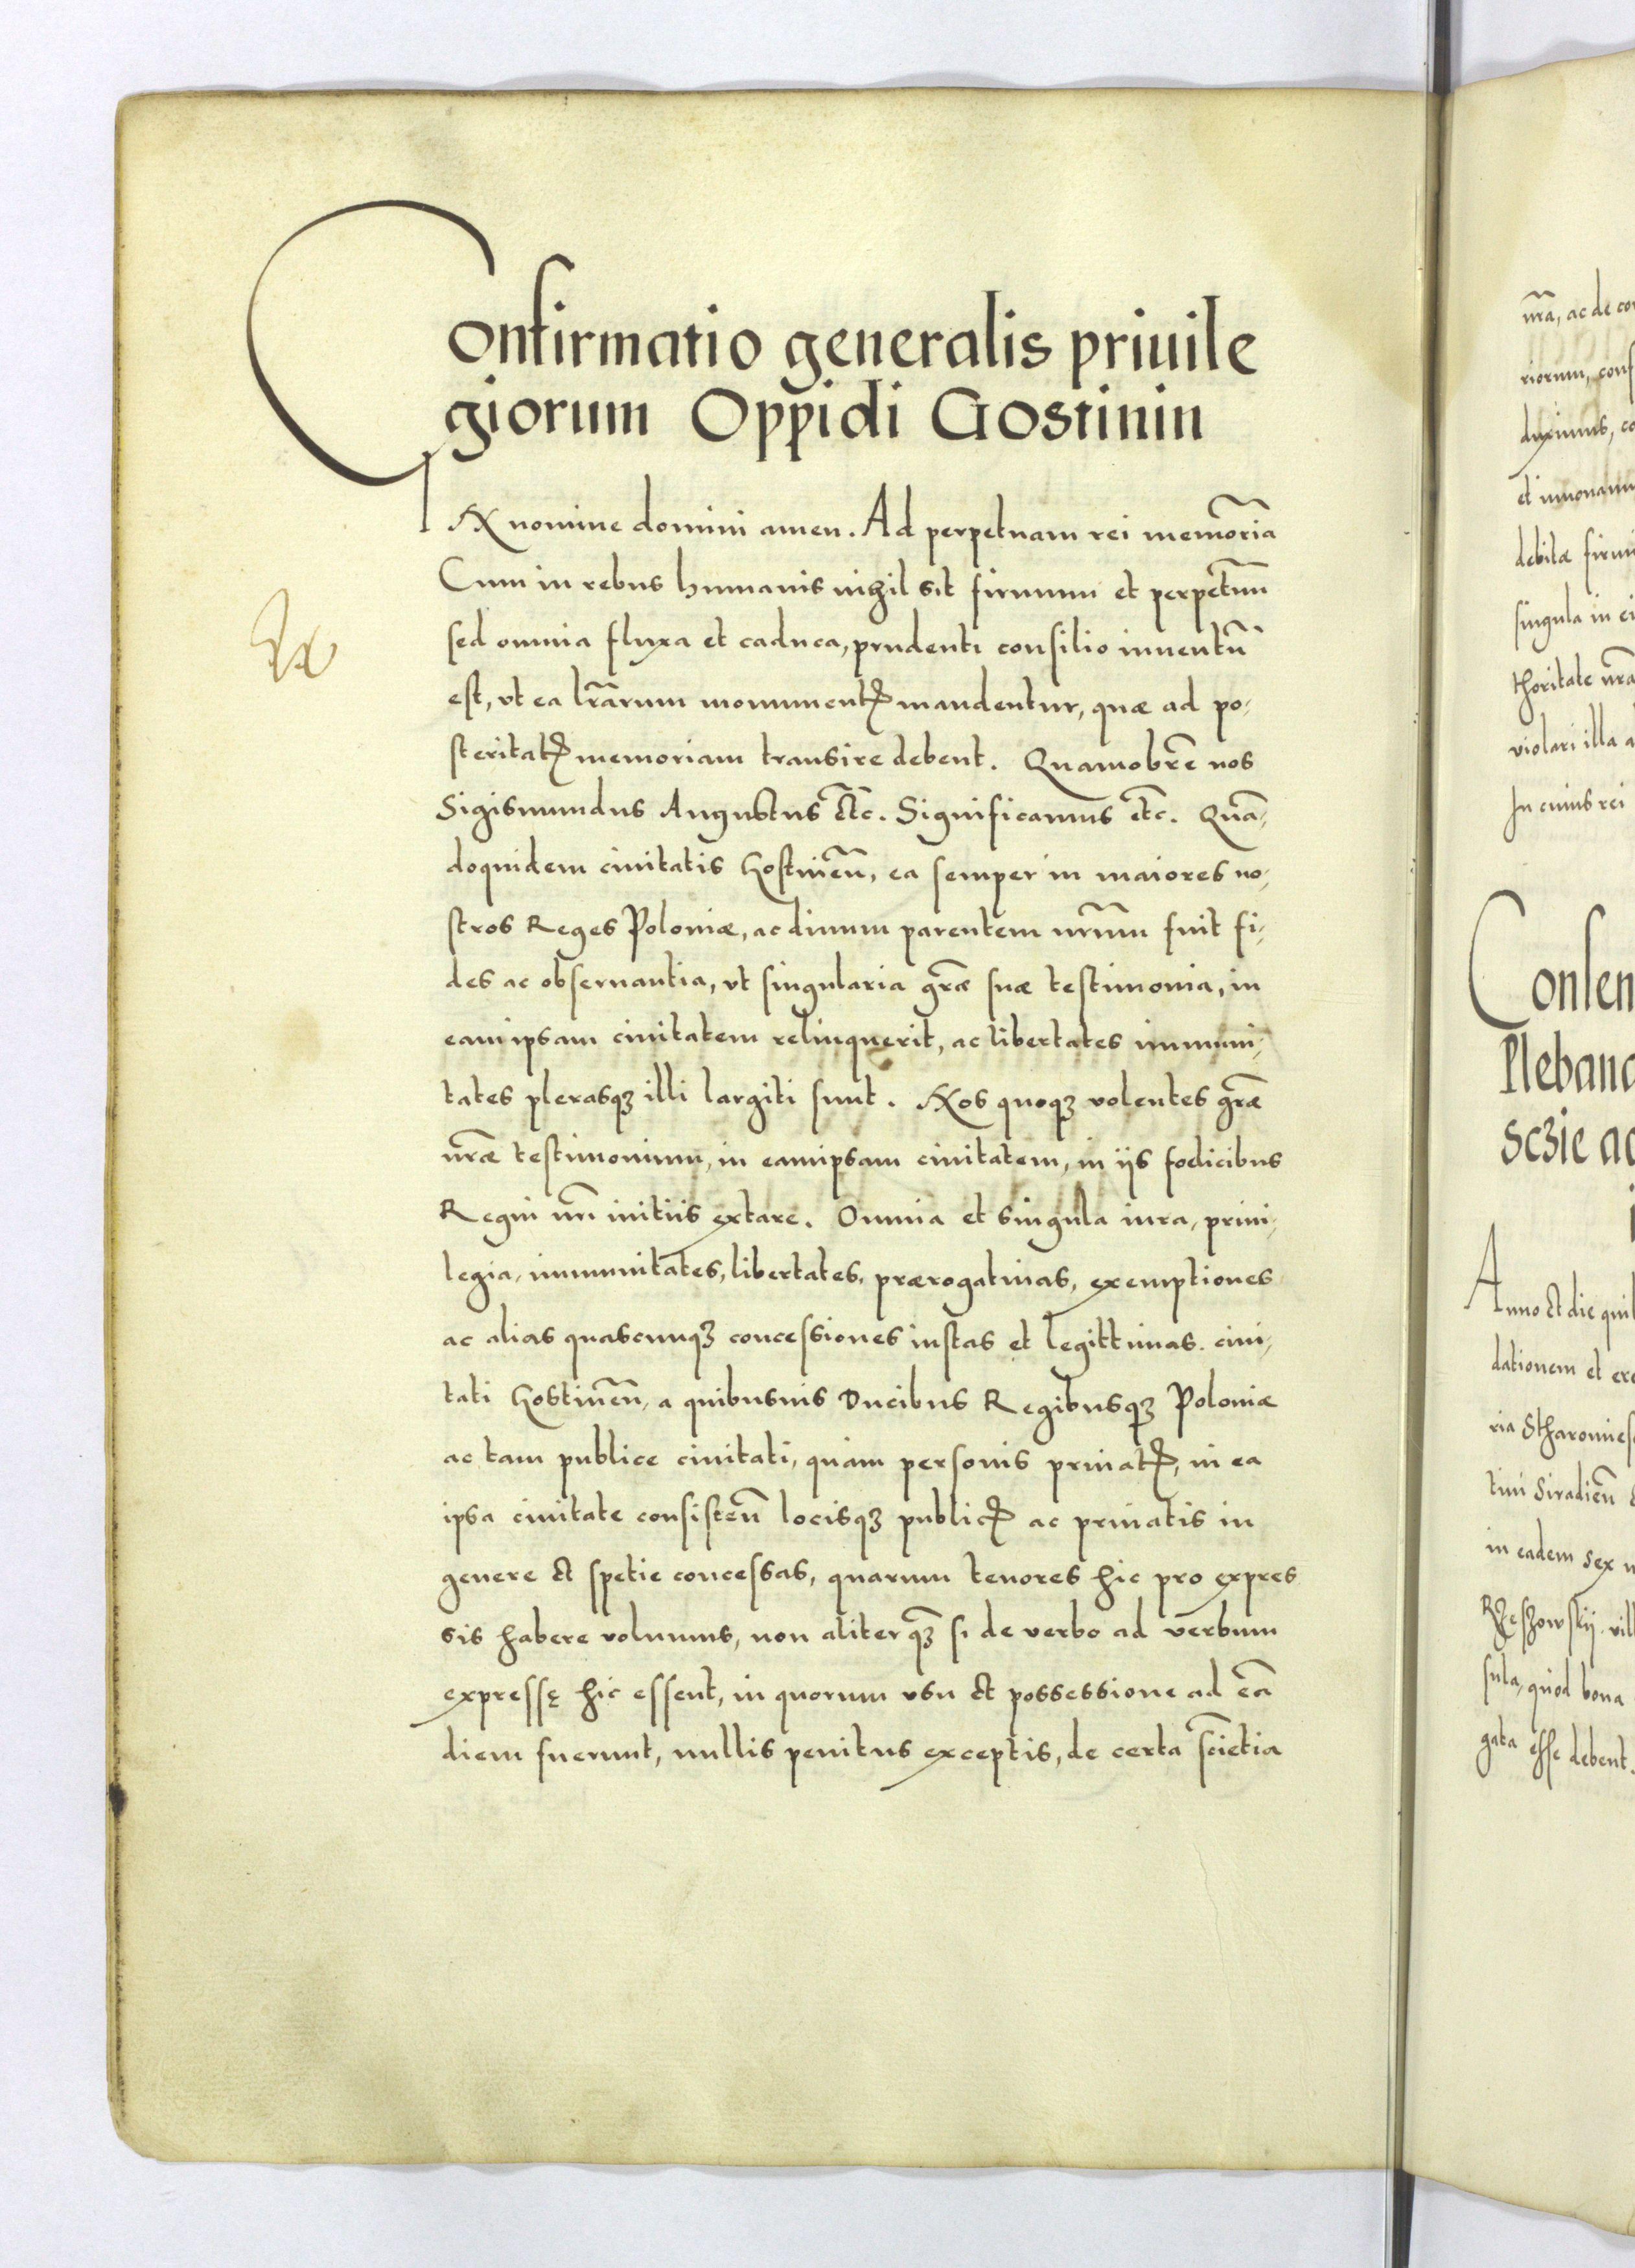 Confirmatio generalis priuile
giorum Oppidi Gostinin
IN nomine domini amen. Ad perpetuam rei memoriã
Cum in rebus humanis nihil sit firmum et perpetuũ
sed omnia fluxa et caduca, prudenti consilio inuentũ
est, vt ea lr̃arum monumentꝭ mandentur, quæ ad po-
steritatꝭ memoriam transire debent. Quamobrẽ nos
Sigismundus Augustus etc̃. Significamus etc̃. Quã-
doquidem ciuitatis Gostinieñ, ea semper in maiores no-
stros Reges Poloniæ, ac diuum parentem nr̃um fuit fi-
des ac obseruantia, vt singularia gr̃æ suæ testimonia, in
eam ipsam ciuitatem relinquerit, ac libertates immuni-
tates plerasqꝫ illi largiti sunt. Nos quoqꝫ volentes gr̃æ
nr̃æ testimonium, in eamipsam ciuitatem, in ijs foelicibus
Regni nr̃i initiis extare. Omnia et singula iura, priui-
legia, immunitates, libertates, prærogatiuas, exemptiones
ac alias quascunqꝫ concessiones iustas et legittimas. ciui-
tati Gostineñ, a quibusuis Ducibus Regibusqꝫ Poloniæ
ac tam publice ciuitati, quam personis priuatꝭ, in ea
ipsa ciuitate consisteñ locisqꝫ publicꝭ ac priuatis in
genere et spetie concessas, quarum tenores hic pro expres
sis habere volumus, non aliter qꝫ̃ si de verbo ad verbum
expressę hic essent, in quorum vsu et possessione ad eã
diem fuerunt, nullis penitus exceptis, de certa sciẽtia
nr̃a, ac de co
riorum, conf
duximus, co
debitæ firmi
singula in ei
thoritate nr̃a
violari illa a
In cuius rei
Consen
Plebano
sczie ac
Anno et die qui
dationem et ere
tini Siradieñ
in eadem sex
sula, quod bona
gata esse debent.